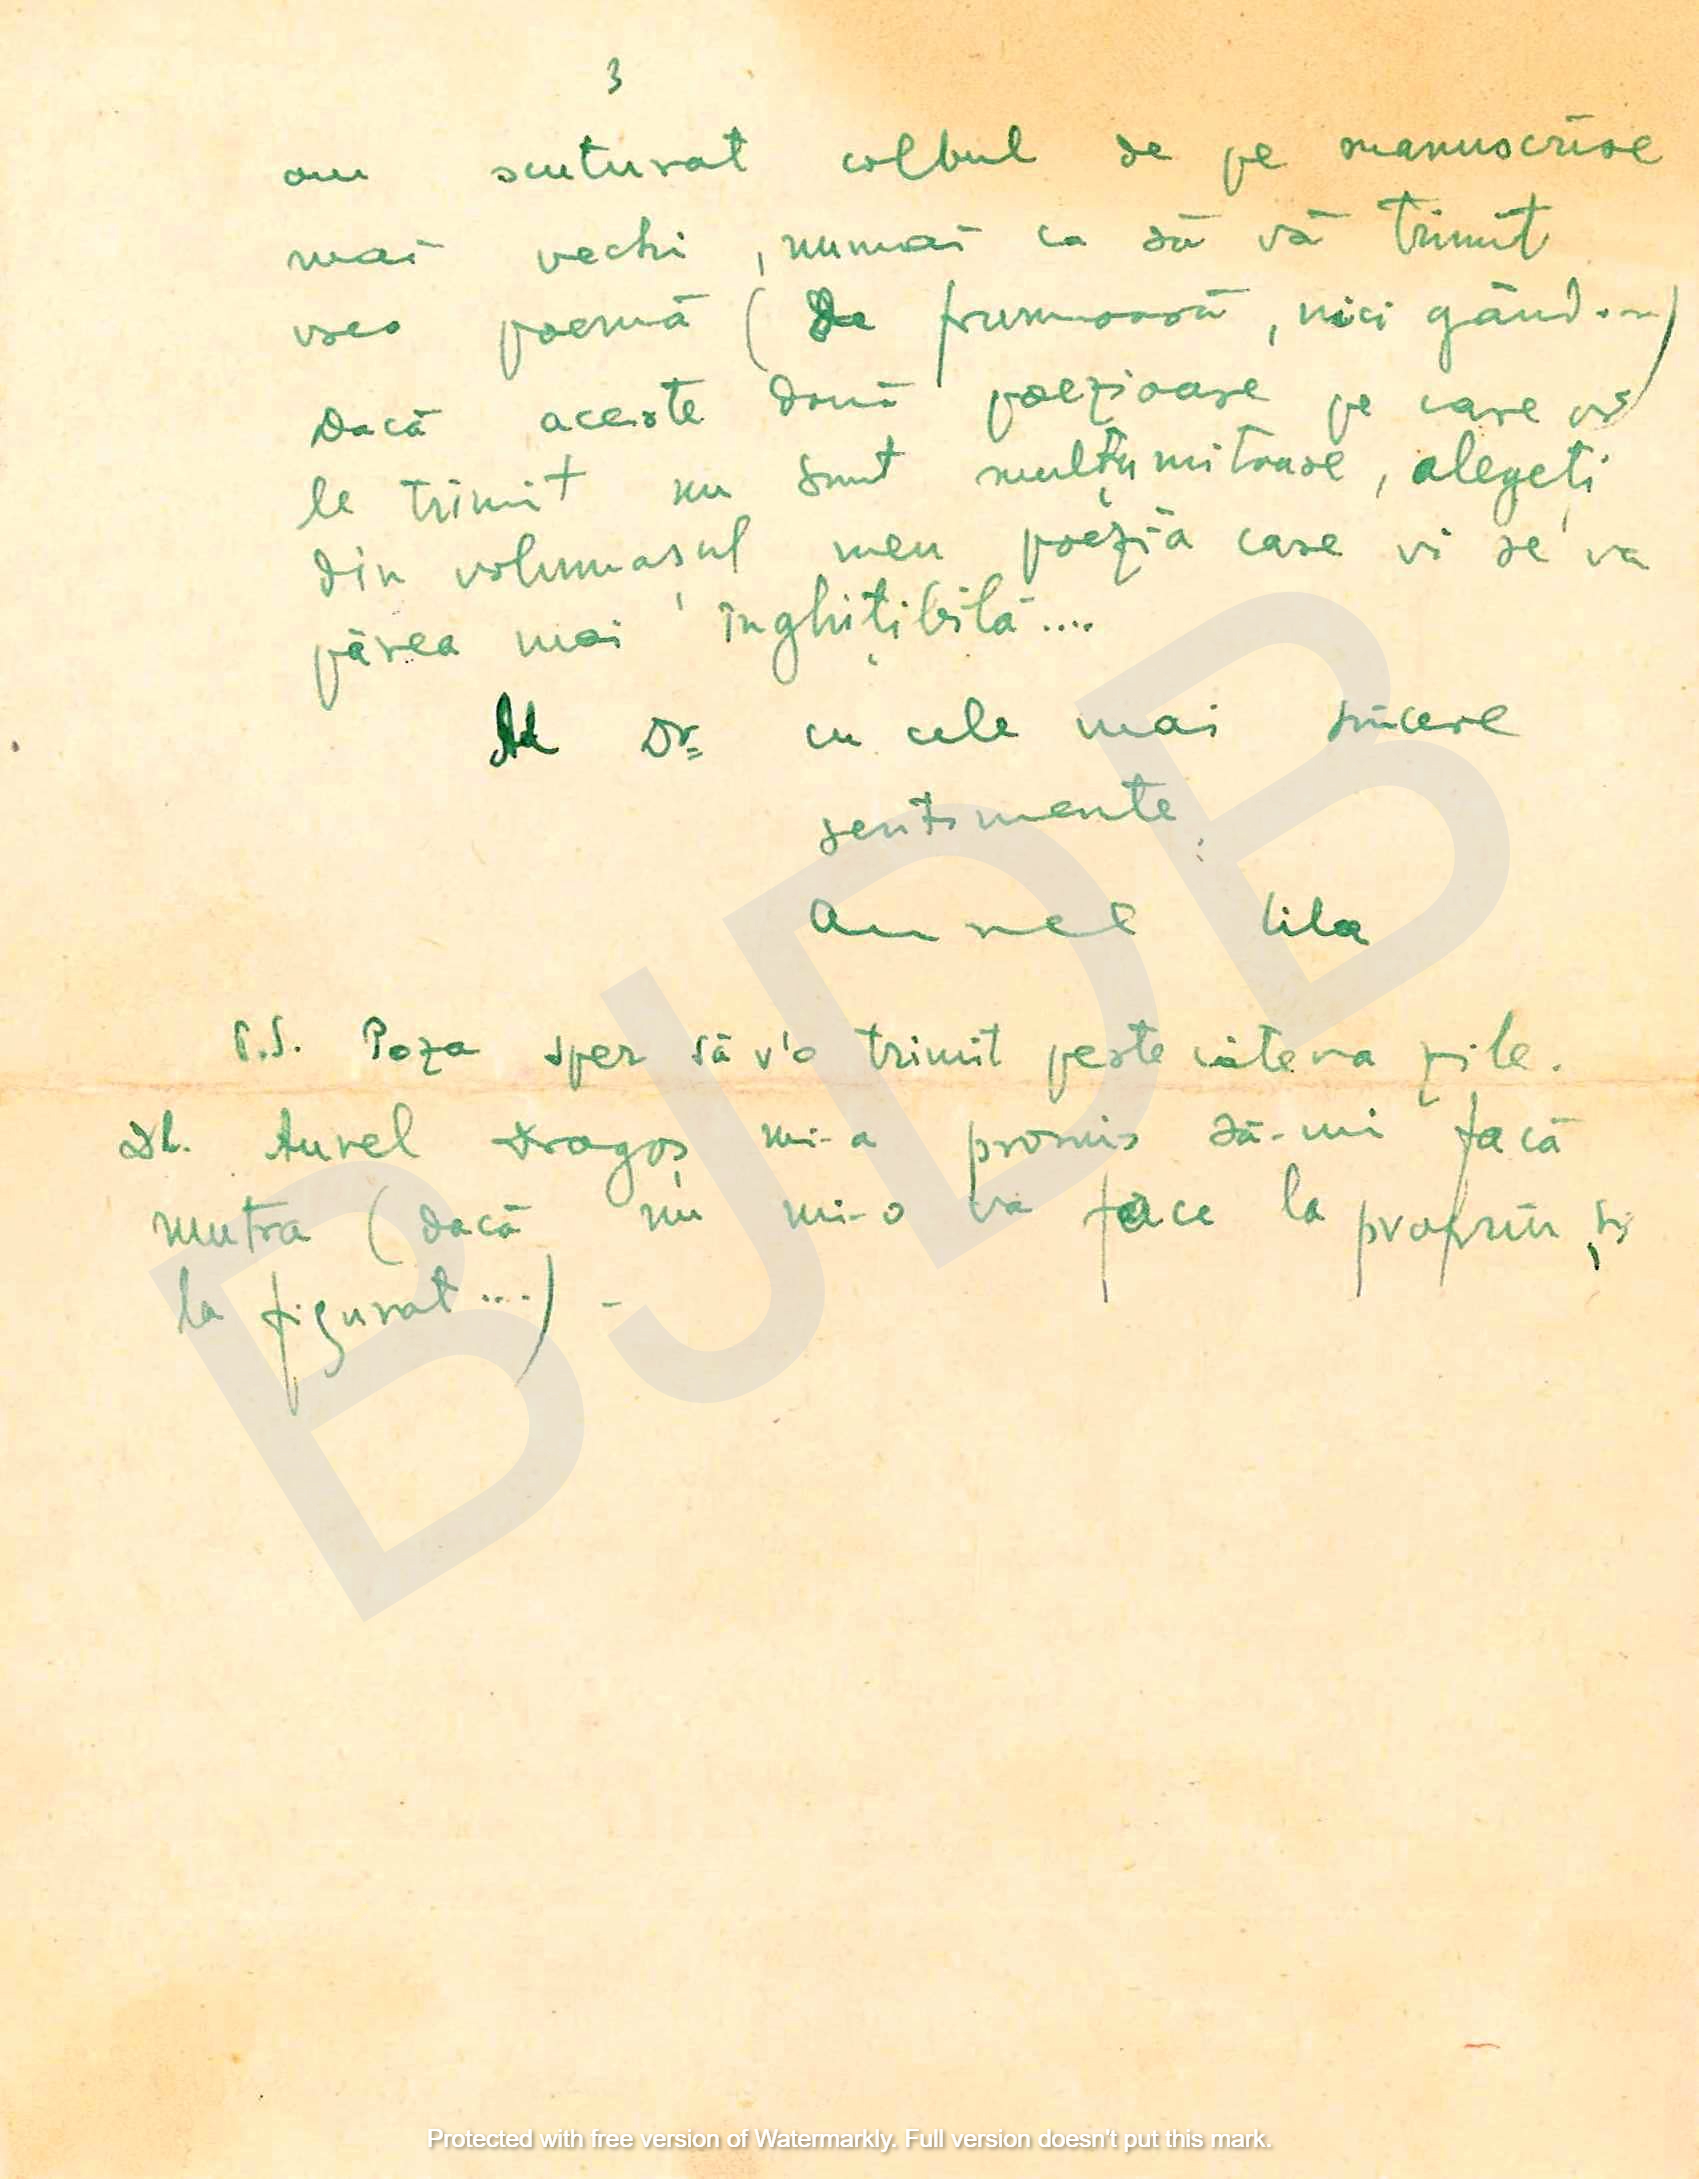 3
am scuturat colbul de pe manuscrise
mai vechi, numai ca să vă trimit
vreo poemă (de frumoasă, nici gând...)
Dacă aceste două poezioare pe care vi
le trimit nu sunt mulțumitoare, alegeți
din volumașul meu poezia care vi se va
părea mai înghițibilă....
Al Dv. cu cele mai sincere
sentimente
Aurel Lila
P.S. Poza sper să v'o trimit peste câteva zile.
Dl. Aurel Dragoș mi-a promis să-mi facă
mutra (dacă nu mi-o va face la propriu, și
la figurat....) -
BJDB
Protected with free version of Watermarkly. Full version doesn't put this mark.